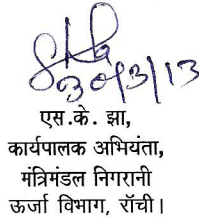 30/3/13
एस.के. झा,
कार्यपालक अभियंता,
मंत्रिमंडल निगरानी
ऊर्जा विभाग, राँची।